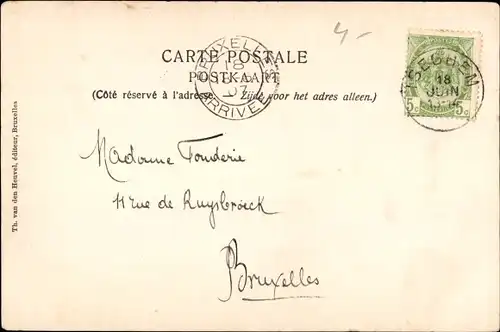 4-
CARTE POSTALE
POSTKAART
(Côté réservé à l'adresse. Zijde voor het adres alleen.)
BRUXELLES
18
07
ARRIVEE
18
JUIN
5c 5c
Madame Fonderie
11 rue de Ruysbroeck
Bruxelles
Th. van den Heuvel, éditeur, Bruxelles